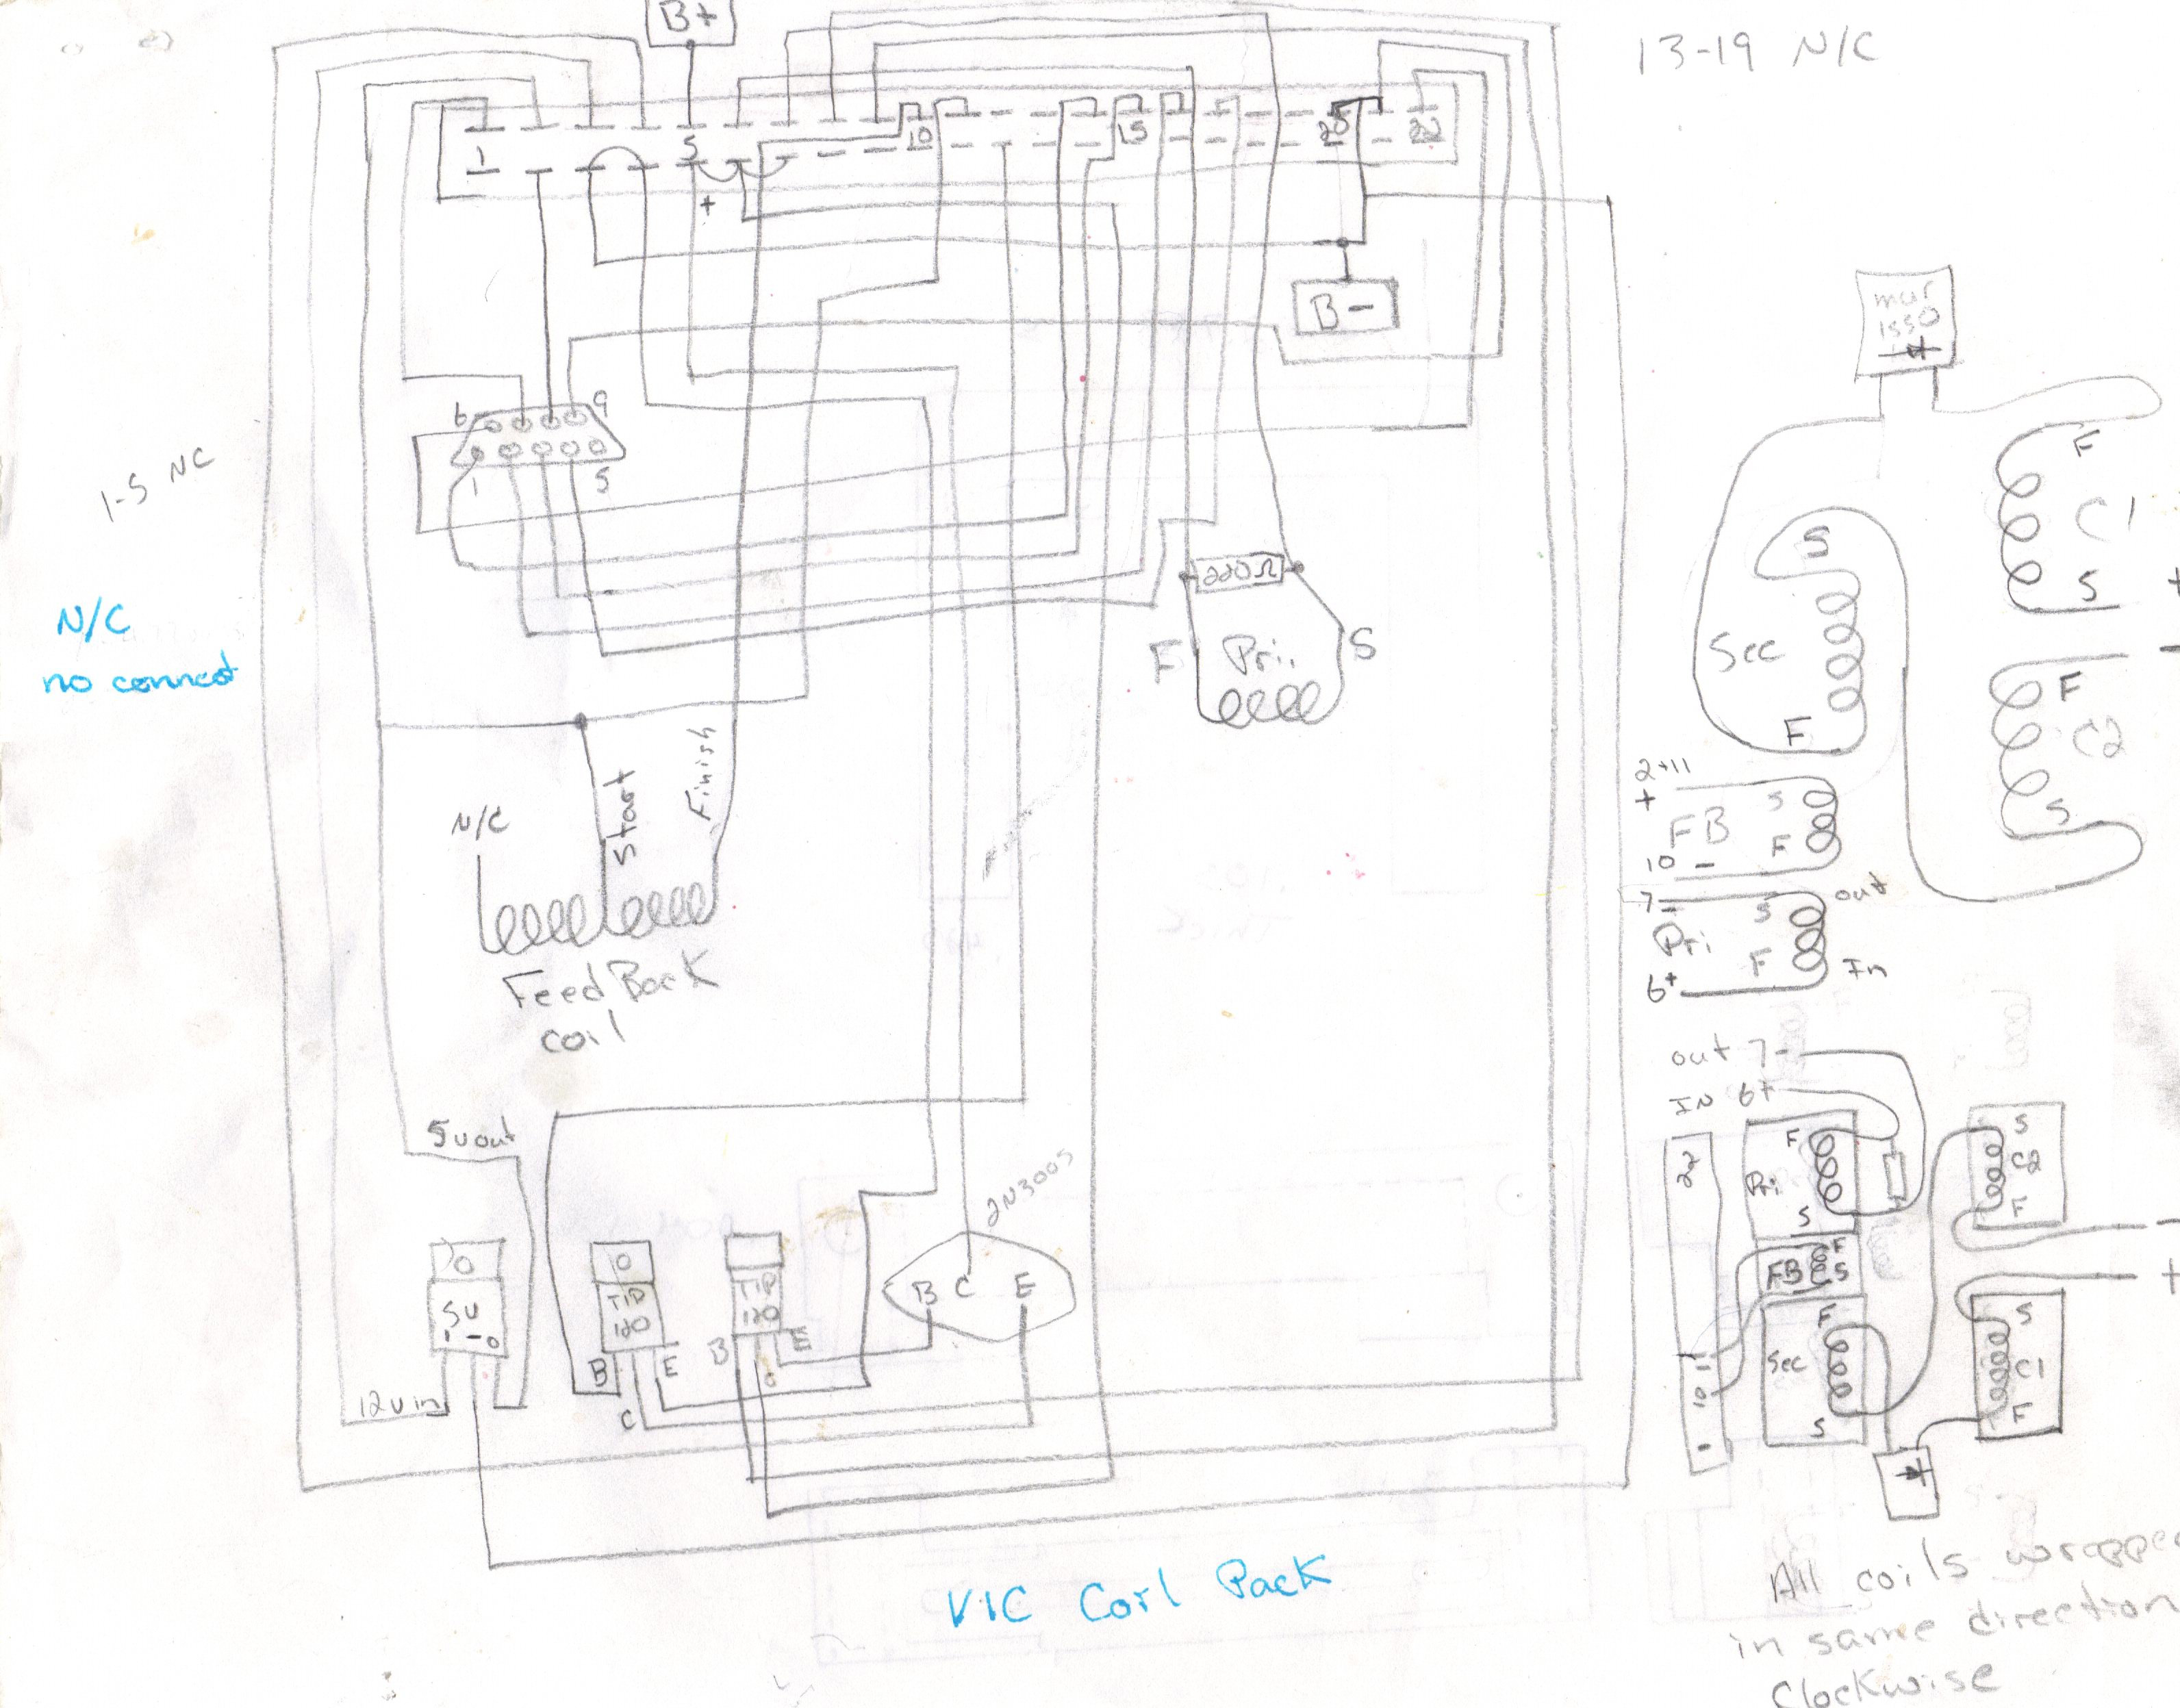 B+
13-19 N/C
1
5
10
15
20
22
+
B-
mur
1550
6
9
1
5
1-5 NC
N/C
no connect
220Ω
F
Pri.
S
F
C1
S
+
S
Sec
F
-
F
C2
S
2+11
+
S
FB
F
10 -
7 -
S
out
Pri
F
In
6+
N/C
Start
Finish
FeedBack
coil
out 7-
IN 6+
5v out
2N3005
O
5v
O
TIP
120
B
E
C
TIP
120
B
E
B C E
12v in
22
F
Pri
S
F
FB
S
F
Sec
S
11
10
S
C2
F
-
+
S
C1
F
VIC Coil Pack
All coils wrapped
in same direction
Clockwise